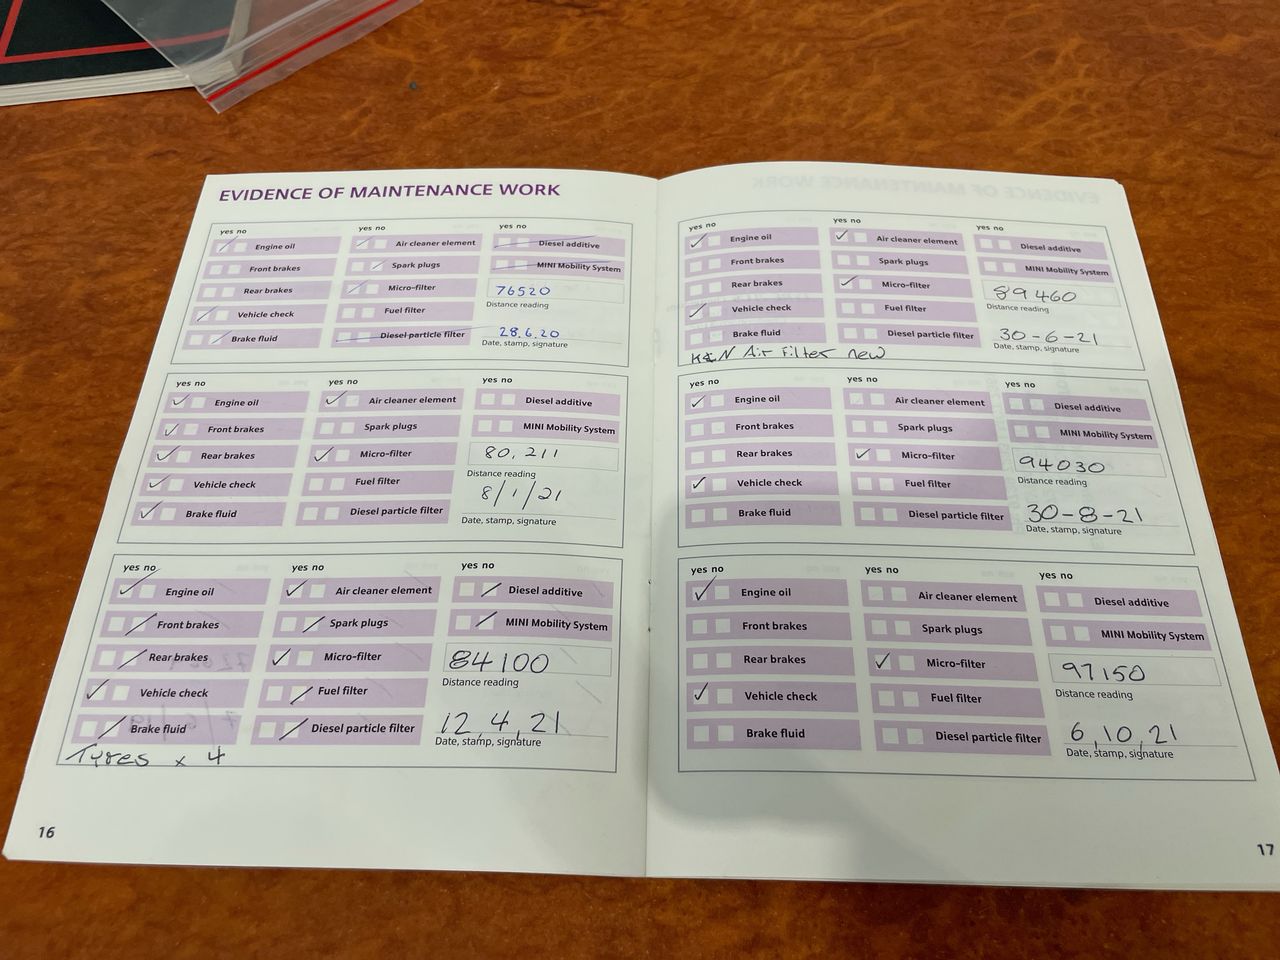 EVIDENCE OF MAINTENANCE WORK
yes no yes no yes no
Engine oil Air cleaner element Diesel additive
Front brakes Spark plugs MINI Mobility System
Rear brakes Micro-filter 76520
Distance reading
Vehicle check Fuel filter
Brake fluid Diesel particle filter 28.6.20
Date, stamp, signature
yes no yes no yes no
Engine oil Air cleaner element Diesel additive
Front brakes Spark plugs MINI Mobility System
Rear brakes Micro-filter 80,211
Distance reading
Vehicle check Fuel filter 8/1/21
Brake fluid Diesel particle filter Date, stamp, signature
yes no yes no yes no
Engine oil Air cleaner element Diesel additive
Front brakes Spark plugs MINI Mobility System
Rear brakes Micro-filter 84100
Distance reading
Vehicle check Fuel filter
Brake fluid Diesel particle filter 12,4,21
Date, stamp, signature
Tyres x 4
16
yes no yes no yes no
Engine oil Air cleaner element Diesel additive
Front brakes Spark plugs MINI Mobility System
Rear brakes Micro-filter 89460
Distance reading
Vehicle check Fuel filter
Brake fluid Diesel particle filter 30-6-21
Date, stamp, signature
K&N Air Filter new
yes no yes no yes no
Engine oil Air cleaner element Diesel additive
Front brakes Spark plugs MINI Mobility System
Rear brakes Micro-filter 94030
Distance reading
Vehicle check Fuel filter
Brake fluid Diesel particle filter 30-8-21
Date, stamp, signature
yes no yes no yes no
Engine oil Air cleaner element Diesel additive
Front brakes Spark plugs MINI Mobility System
Rear brakes Micro-filter 97150
Distance reading
Vehicle check Fuel filter
Brake fluid Diesel particle filter 6,10,21
Date, stamp, signature
17